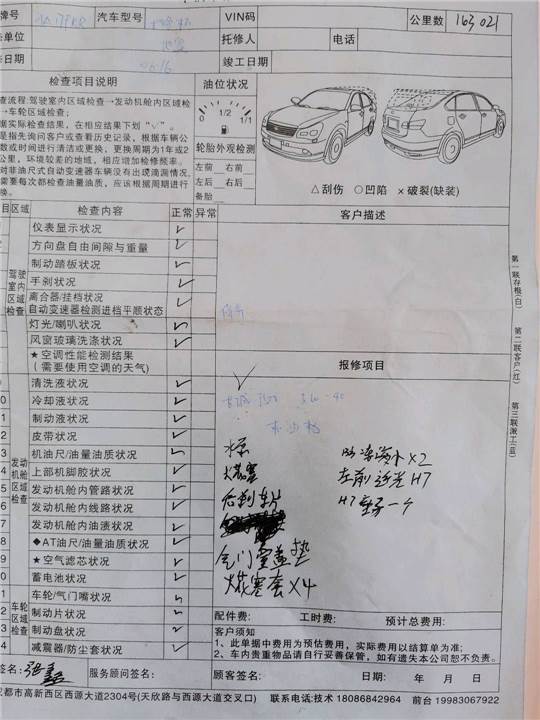 牌号 汽车型号 VIN码 公里数 163021
单位 托修人 电话
日期 竣工日期
检查项目说明 油位状况
查流程:驾驶室内区域检查→发动机舱内区域检
→车轮区域检查;
据实际检查结果,在相应结果下划"√"。
是指先询问客户或查看历史记录,根据车辆公
数或时间进行清洁或更换,更换周期为1年或2
公里,环境较差的地域,相应增加检修频率。
对非油尺式自动变速器车辆没有出现滴漏情况,
需要每次都检查油量油质,应该根据周期进行
换。
0 1/2 1/1
轮胎外观检测
左前 右前
左后 右后
备胎
△刮伤 ○凹陷 ×破裂(缺装)
目 区域 检查内容 正常 异常 客户描述
驾驶室内区域检查
仪表显示状况
方向盘自由间隙与重量
制动踏板状况
手刹状况
离合器/挂档状况
自动变速器检测进档平顺状态
灯光/喇叭状况
风窗玻璃洗涤状况
★空调性能检测结果
(需要使用空调的天气)
报修项目
发动机舱区域检查
清洗液状况
0 冷却液状况
1 制动液状况
2 皮带状况
3 机油尺/油量油质状况
4 上部机脚胶状况
5 发动机舱内管路状况
6 发动机舱内线路状况
7 发动机舱内油渍状况
8 ◆AT油尺/油量油质状况
9 ★空气滤芯状况
0 蓄电池状况
车轮区域检查
1 车轮/气门嘴状况
2 制动片状况
3 制动盘状况
4 减震器/防尘套状况
水泵
火花塞
后刹车片
气门室盖垫
火花塞套×4
×2
左前近光H7
H7 一个
配件费: 工时费: 预计总费用:
客户须知
1、此单据中费用为预估费用,实际费用以结算单为准;
2、车内贵重物品请自行妥善保管,如有遗失本公司恕不负责。
签名: 服务顾问签名: 顾客签名: 日期: 年 月 日
成都市高新西区西源大道2304号(天欣路与西源大道交叉口) 联系电话:技术 18086842964 前台 19983067922
第一联存根(白)
第二联客户(红)
第三联派工(蓝)